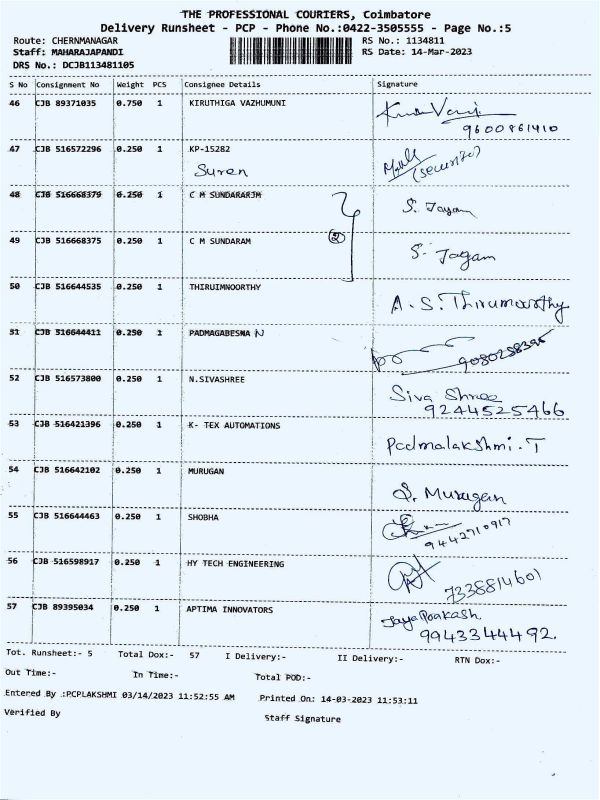 THE PROFESSIONAL COURIERS, Coimbatore
Delivery Runsheet - PCP - Phone No.:0422-3505555 - Page No.:5
Route: CHERNMANAGAR
RS No.: 1134811
Staff: MAHARAJAPANDI
RS Date: 14-Mar-2023
DRS No.: DCJB113481105
S No Consignment No Weight PCS Consignee Details Signature
46 CJB 89371035 0.750 1 KIRUTHIGA VAZHUMUNI
9600861410
47 CJB 516572296 0.250 1 KP-15282
Suren (Security)
48 CJB 516668379 0.250 1 C M SUNDARARJM S. Jagam
49 CJB 516668375 0.250 1 C M SUNDARAM 2 S. Jagam
50 CJB 516644535 0.250 1 THIRUIMNOORTHY A.S.Thirumoorthy
51 CJB 516644411 0.250 1 PADMAGABESWA N 9080258395
52 CJB 516573800 0.250 1 N.SIVASHREE Siva Shree
9244525466
53 CJB 516421396 0.250 1 K- TEX AUTOMATIONS Padmalakshmi.T
54 CJB 516642102 0.250 1 MURUGAN S. Murugan
55 CJB 516644463 0.250 1 SHOBHA 9442710917
56 CJB 516598917 0.250 1 HY TECH ENGINEERING 7338814601
57 CJB 89395034 0.250 1 APTIMA INNOVATORS JayaPrakash.
9943344492.
Tot. Runsheet:- 5 Total Dox:- 57 I Delivery:- II Delivery:- RTN Dox:-
Out Time:- In Time:- Total POD:-
Entered By :PCPLAKSHMI 03/14/2023 11:52:55 AM Printed On: 14-03-2023 11:53:11
Verified By Staff Signature